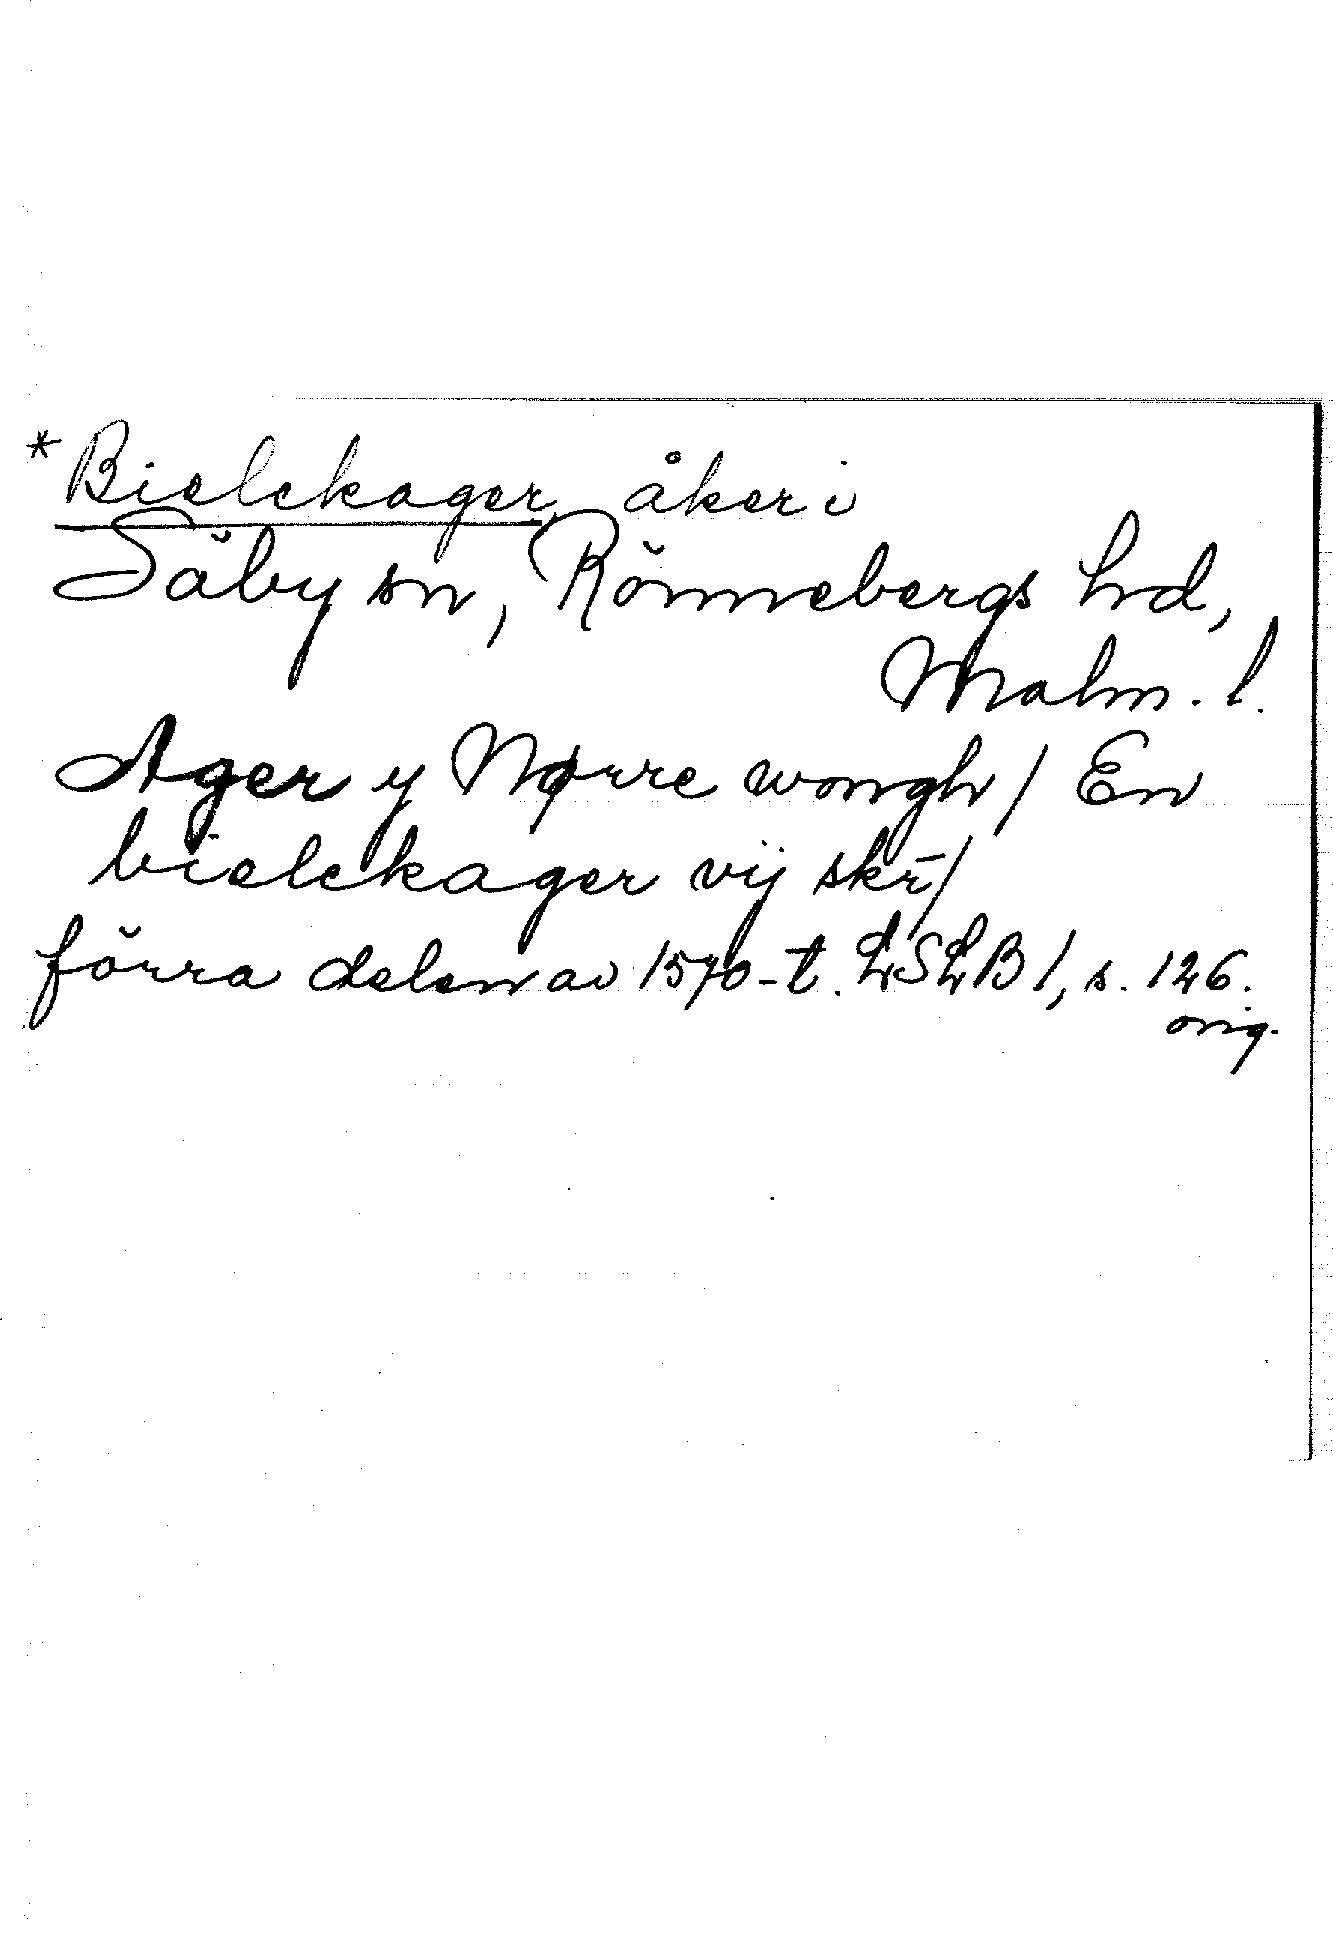 *Bielckager, åker i
Säby sn, Rönnebergs hd,
Malm. l.
Ager y Nørre wongh/ En
bielckager vij skr̄/
förra delen av 1570-t. LSLB 1, s. 126.
orig.